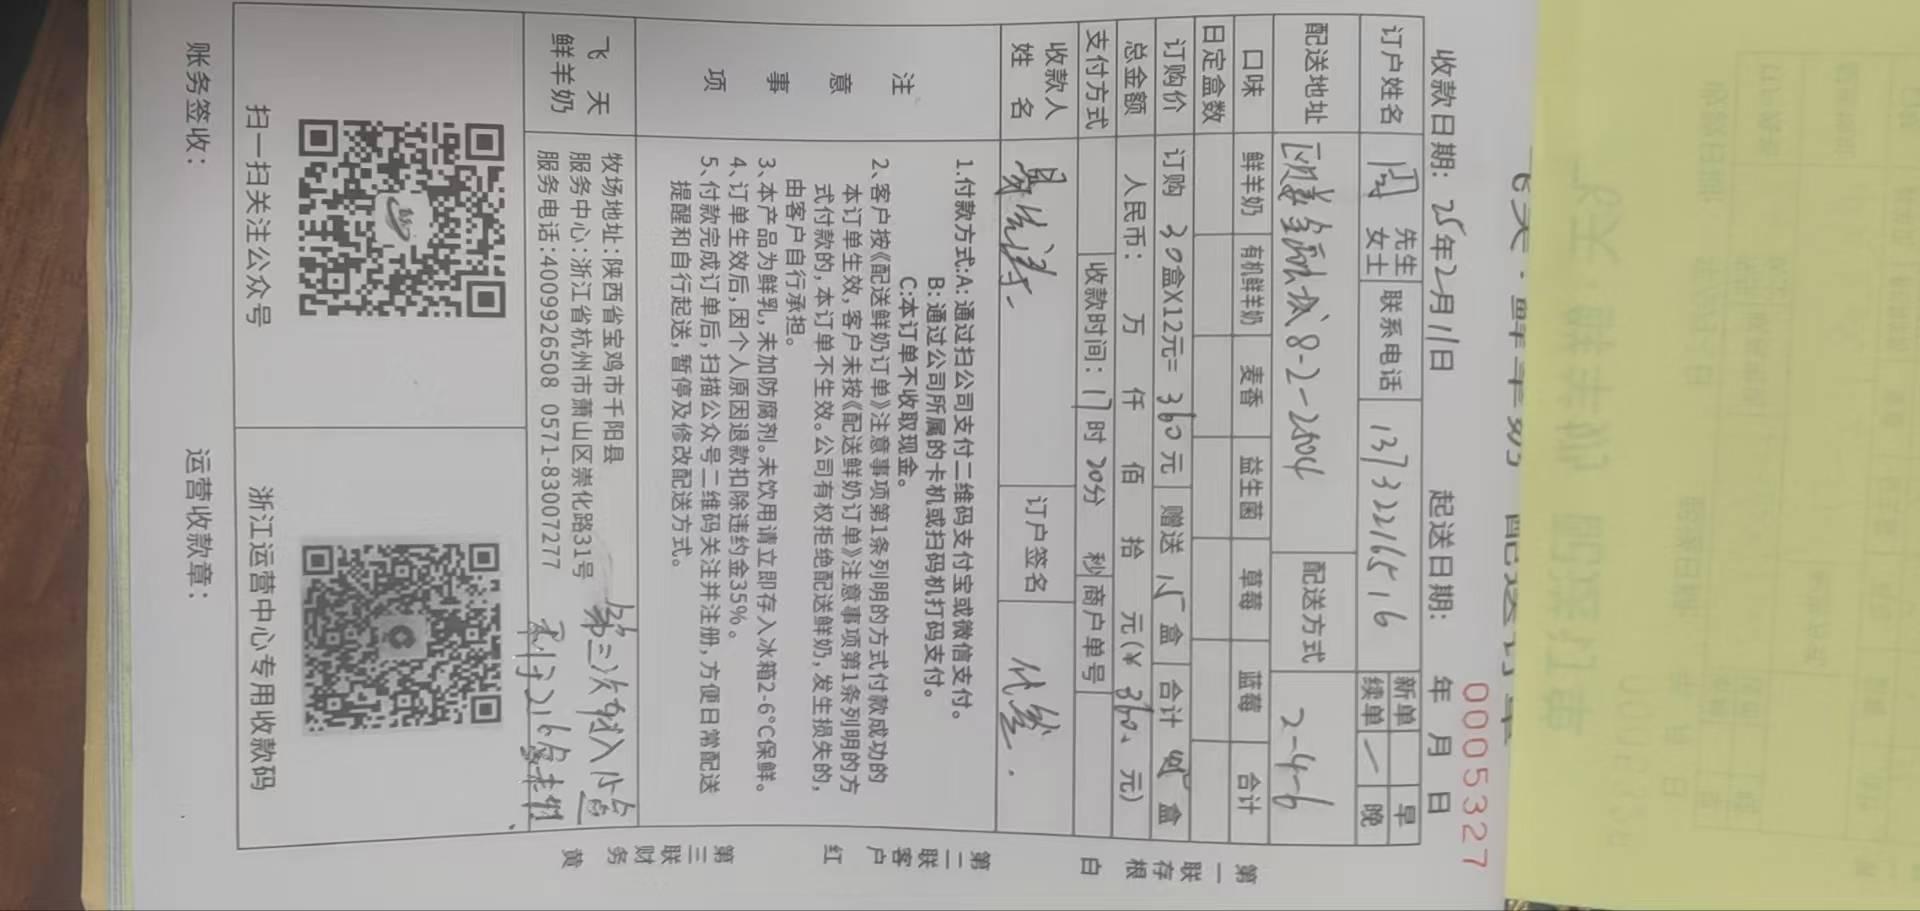 飞天·鲜羊奶 配送订单
0005327
收款日期：25年2月11日 起送日期： 年 月 日
订户姓名 周 先生 女士 联系电话 13732216516 新单 续单 一 早 晚
配送地址 8-2-2504 配送方式 2-4-6
口味 鲜羊奶 有机鲜羊奶 麦香 益生菌 草莓 蓝莓 合计
日定盒数
订购价 订购 30盒X12元= 360元 赠送 15盒 合计 45盒
总金额 人民币： 万 仟 佰 拾 元(¥ 360. 元)
支付方式 收款时间：17时20分 秒 商户单号
收款人姓名 订户签名 代签.
注意事项
1.付款方式:A: 通过扫公司支付二维码支付宝或微信支付。
B: 通过公司所属的卡机或扫码机打码支付。
C:本订单不收取现金。
2、客户按《配送鲜奶订单》注意事项第1条列明的方式付款成功的
本订单生效,客户未按《配送鲜奶订单》注意事项第1条列明的方
式付款的,本订单不生效。公司有权拒绝配送鲜奶,发生损失的,
由客户自行承担。
3、本产品为鲜乳,未加防腐剂。未饮用请立即存入冰箱2-6°C保鲜。
4、订单生效后,因个人原因退款扣除违约金35%。
5、付款完成订单后,扫描公众号二维码关注并注册,方便日常配送
提醒和自行起送,暂停及修改配送方式。
飞天鲜羊奶
牧场地址:陕西省宝鸡市千阳县
服务中心:浙江省杭州市萧山区崇化路31号
服务电话:4009926508 0571-83007277
第三次
扫一扫关注公众号
浙江运营中心专用收款码
账务签收： 运营收款章：
第一联存根 白
第二联客户 红
第三联财务 黄